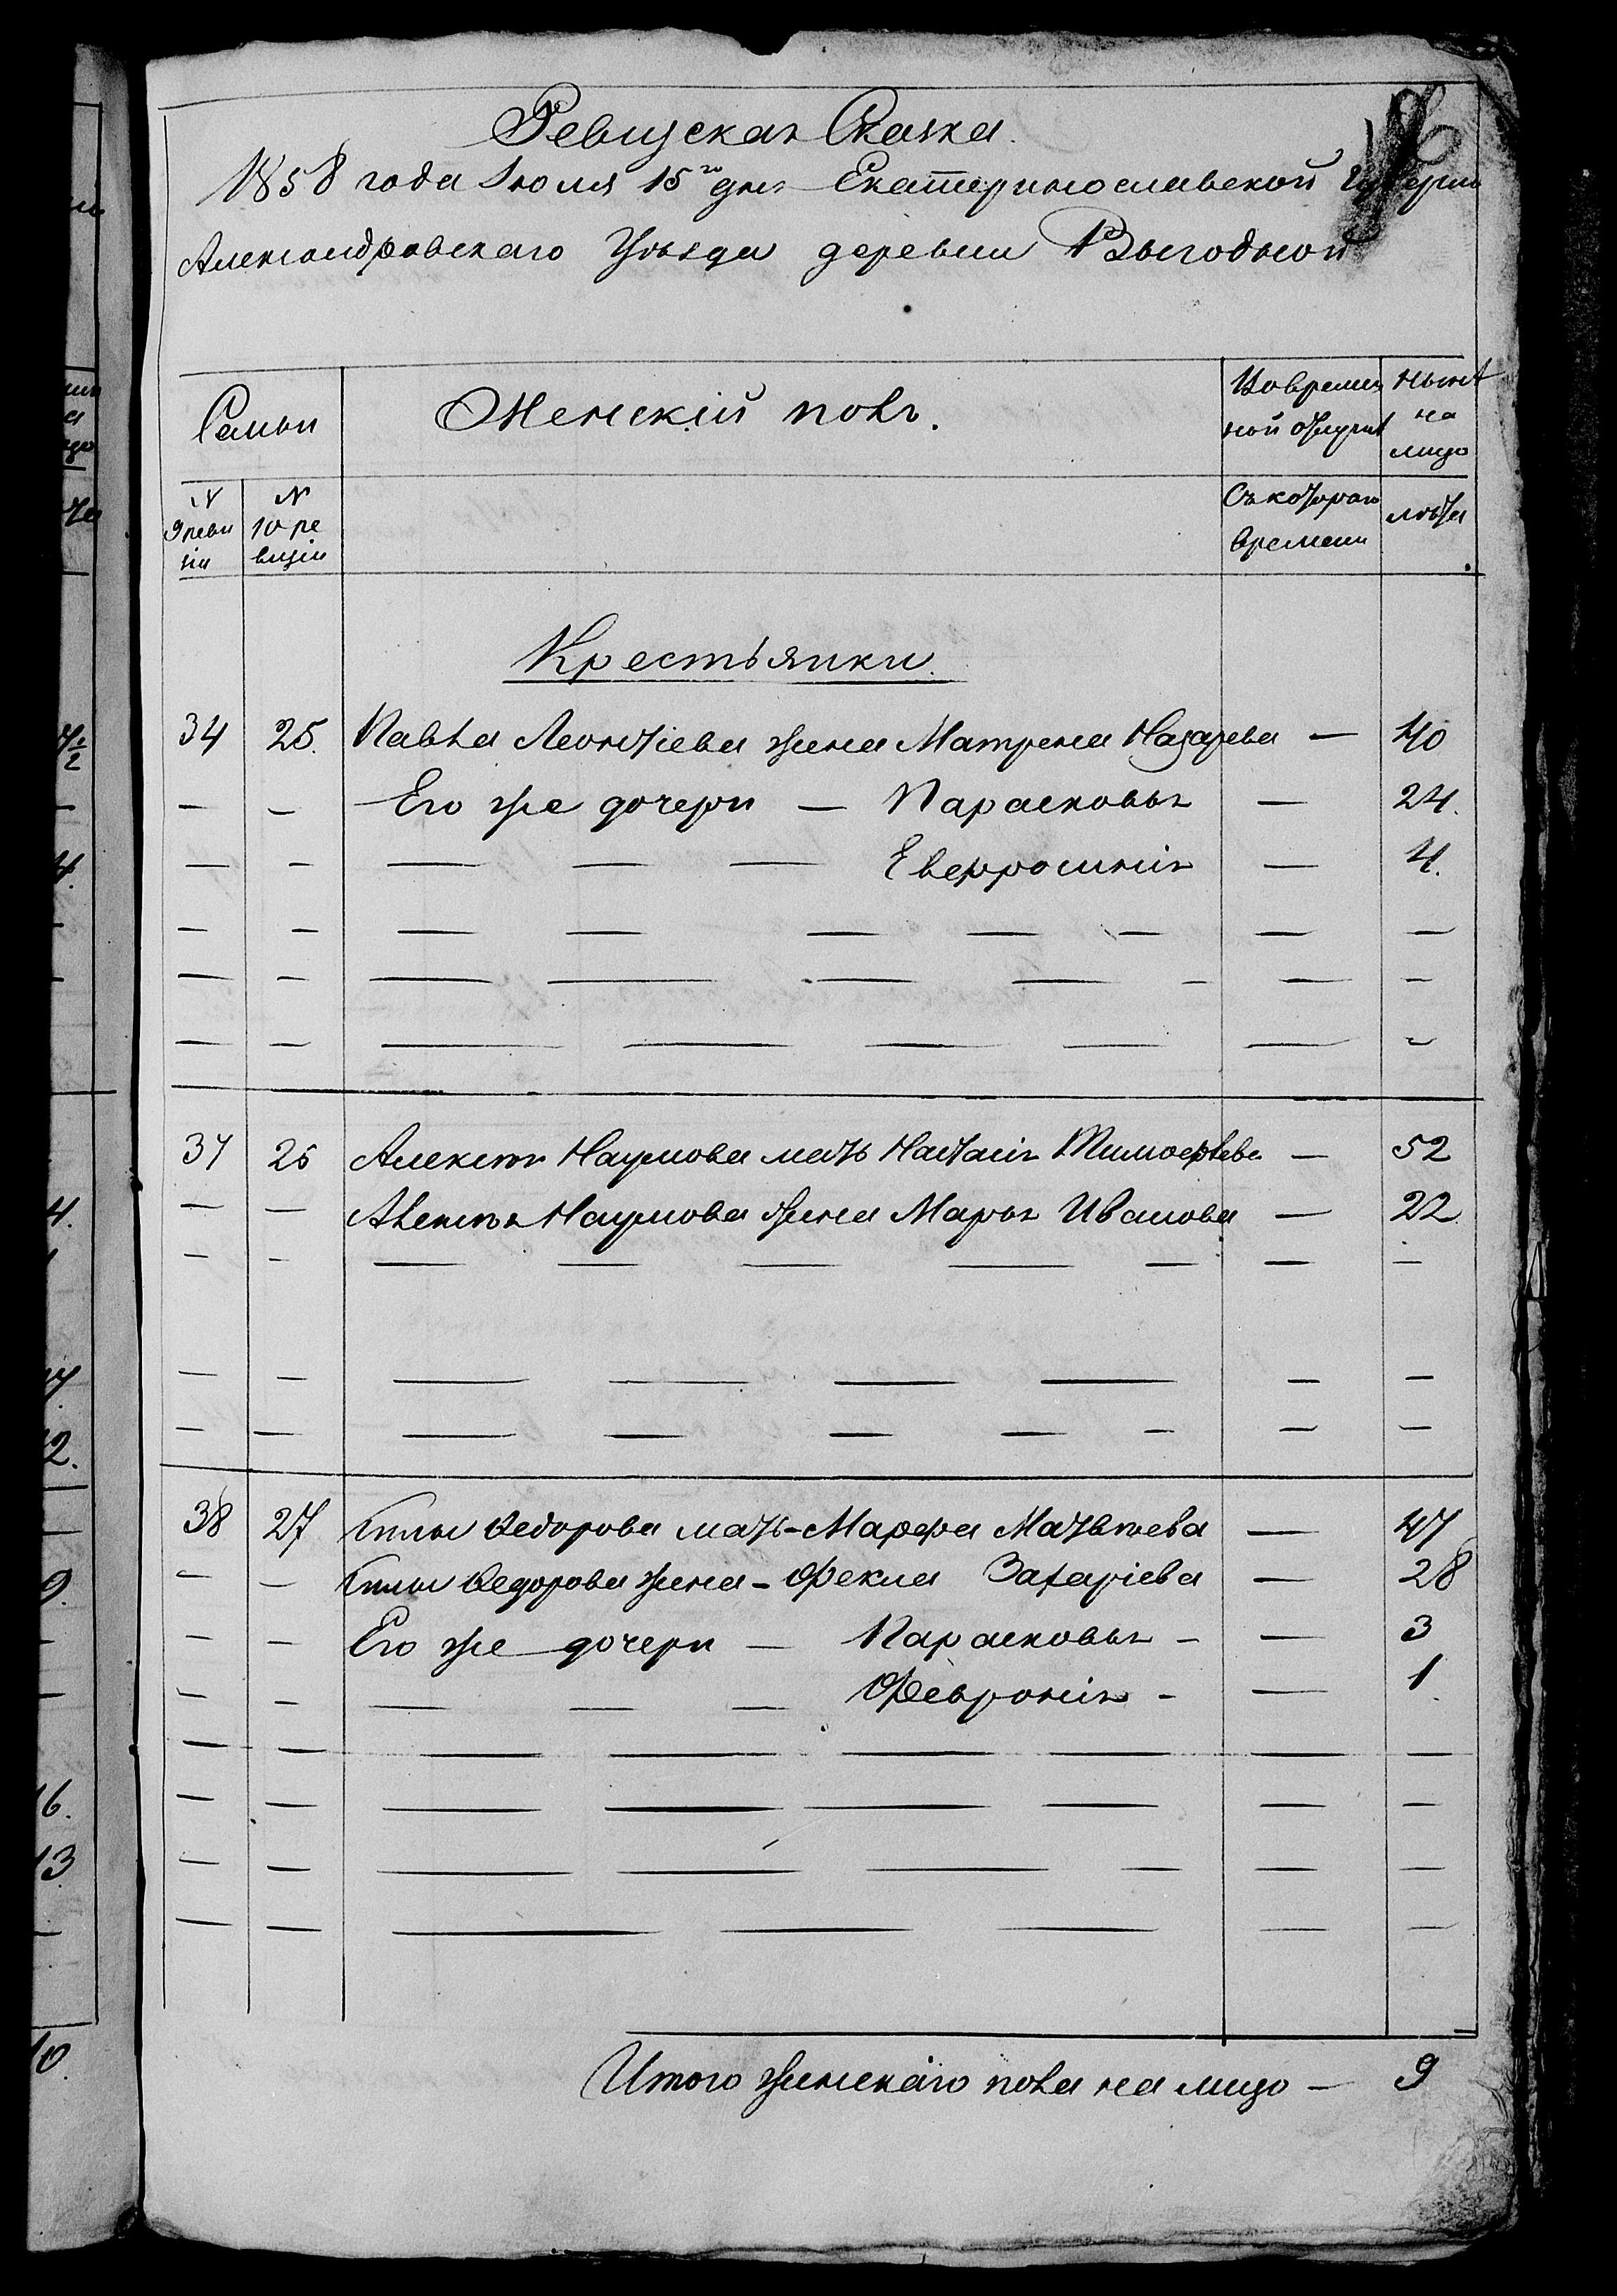 Ревизская Сказка.
1858 года Июля 15го дня Екатеринославской Губерніи
Александровскаго Уѣзда деревни Выгодной
Семьи
Женскій полъ.
Во времен
ной отлучкѣ
Нынѣ
на
лицо
N
9 реви
зіи
N
10 ре
визіи
Съ котораго
времени
лѣта
Крестьянки.
34 25. Павла Леонтіева жена Матрена Назарева — 40
— — Его же дочери — Парасковья — 24.
— — — — — Евфросинія — 4.
37 26 Алексѣя Наумова мать Наталія Тимофѣева — 52
— — Алексѣя Наумова жена Марья Иванова — 22
38 27 Ѳедорова мать - Марфа Матвѣева — 47
— — Ѳедорова жена - Фекла Захаріева — 28
— — Его же дочери — Парасковья - — 3
— — — — — Февронія - — 1
Итого женскаго пола на лицо — 9